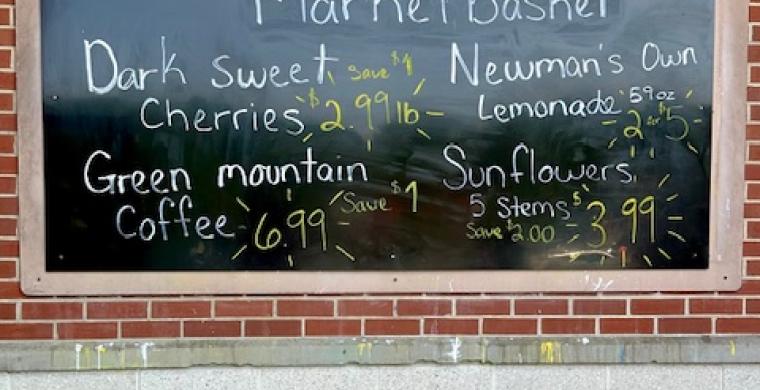 Market Basket
Dark sweet Save $1
Cherries $2.99 lb
Green mountain
Coffee 6.99 Save $1
Newman's Own
Lemonade 59oz
2 for $5
Sunflowers
5 Stems $3.99
Save $2.00